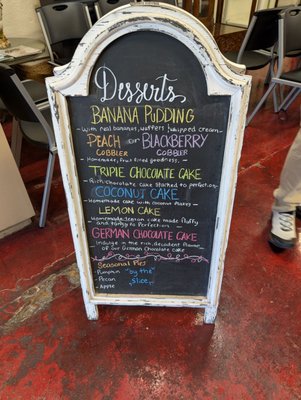 Desserts
BANANA PUDDING
- With real bananas, waffers & whipped cream -
PEACH or BLACKBERRY
COBBLER COBBLER
- Homemade, fruit filled goodness. -
TRIPLE CHOCOLATE CAKE
- Rich chocolate cake stacked to perfection -
COCONUT CAKE
- Homemade cake with coconut flakes -
LEMON CAKE
- Homemade lemon cake made fluffy
and tangy to perfection -
GERMAN CHOCOLATE CAKE
- Indulge in the rich, decadent flavor
of our German Chocolate cake -
Seasonal Pies
- Pumpkin "by the
- Pecan slice"
- Apple